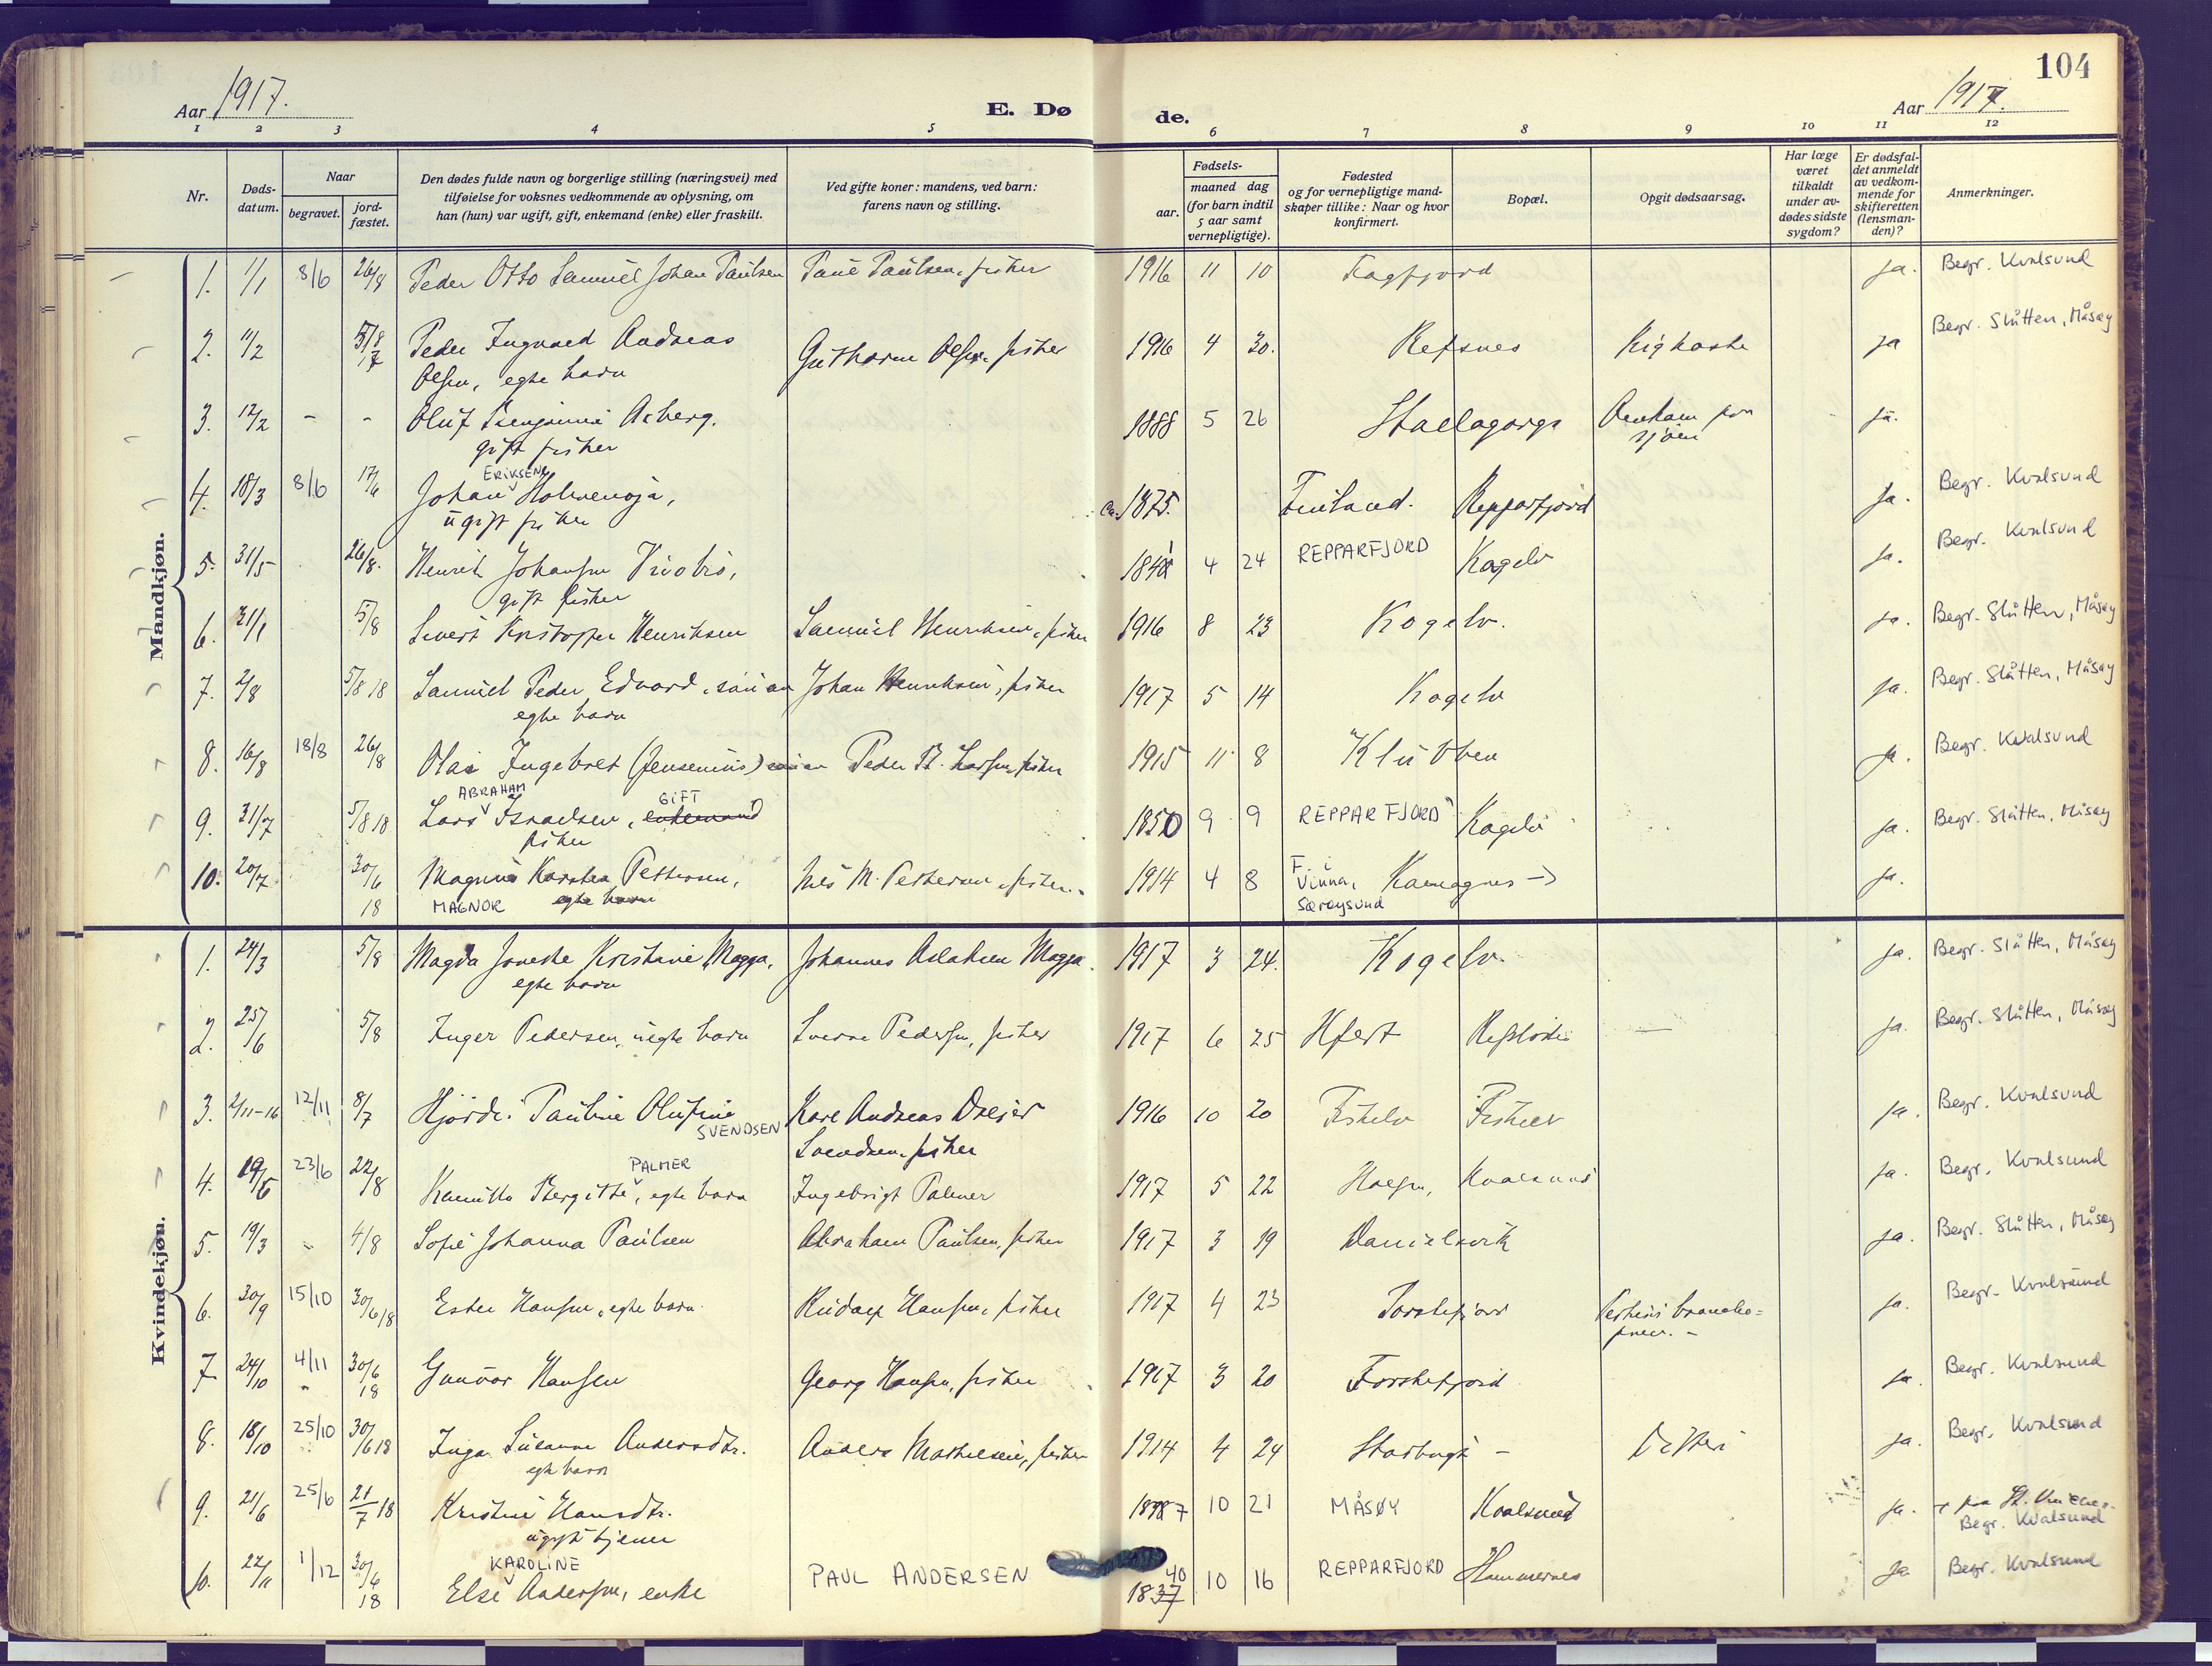 104
Aar 1917. E. Dø de. Aar 1917.
1 2 3 4 5 6 7 8 9 10 11 12
Nr.
Døds-datum.
Naar
begravet.
jord-fæstet.
Den dødes fulde navn og borgerlige stilling (næringsvei) med
tilføielse for voksnes vedkommende av oplysning, om
han (hun) var ugift, gift, enkemand (enke) eller fraskilt.
Ved gifte koner: mandens, ved barn:
farens navn og stilling.
Fødsels-
aar.
maaned dag
(for barn indtil
5 aar samt
vernepligtige).
Fødested
og for vernepligtige mand-
skaper tillike: Naar og hvor
konfirmert.
Bopæl.
Opgit dødsaarsag.
Har læge
været
tilkaldt
under av-
dødes sidste
sygdom?
Er dødsfal-
det anmeldt
av vedkom-
mende for
skifteretten
(lensman-
den)?
Anmerkninger.
Mandkjøn.
1. 1/1 8/6 26/8 Peder Otto Samuel Johan Paulsen Paul Paulsen, fisker 1916 11 10 Fægfjord ja. Begr. Kvalsund
2. 11/2 5/8 17 Peder Ingvald Andreas Guthorm Olsen, fisker 1916 4 30. Refsnes Kighoste ja Begr. Slåtten, Måsøy
Olsen, egte barn
3. 12/2 - - Oluf Benjamin Asberg. 1888 5 26 Stallogargo Omkom paa ja.
gift fisker sjøen
4. 18/3 8/6 17/6 Johan ERIKSEN Holmenoja, ca. 1875. Finland. Repparfjord ja. Begr. Kvalsund
ugift fisker
5. 31/5 26/8. Henrik Johansen 4 24 REPPARFJORD Kogelv ja. Begr. Kvalsund
gift fisker
6. 31/1 5/8 Sivert Kristoffer Henriksen Samuel Henriksen, fisker 1916 8 23 Kogelv. ja. Begr. Slåtten, Måsøy
7. 2/8 5/8 18 Samuel Peder Edvard, søn av Johan Henriksen, fisker 1917 5 14 Kogelv ja. Begr. Slåtten, Måsøy
egte barn
8. 16/8 18/8 26/8 Olai Ingebret (Jensenius) søn av Peder B. Larsen, fisker 1915 11 8 Klubben ja. Begr. Kvalsund
9. 31/7 5/8 18 Lars ABRAHAM Israelsen, GIFT enkemand 1850 9 9 REPPARFJORD Kogelv ja. Begr. Slåtten, Måsøy
fisker
10. 20/7 30/6 18 Magnus Karsten Pettersen, Nils M. Pettersen, fisker. 1914 4 8 F. i Vinna, Sørøysund → ja.
MAGNOR egte barn
Kvindekjøn.
1. 24/3 5/8 Magda Joneske Kristine Magga, Johannes Aslaksen Magga. 1917 3 24. Kogelv. ja. Begr. Slåtten, Måsøy
egte barn
2. 25/6 5/8 Inger Pedersen, uegte barn Sverre Pedersen, fisker 1917 6 25 — ja. Begr. Slåtten, Måsøy
3. 2/11-16 12/11 8/7 Hjørdis Pauline Olufine Karl Andreas Dreier 1916 10 20 Fiskelv Fiskelv ja. Begr. Kvalsund
SVENDSEN Svendsen, fisker
4. 19/6 23/6 22/8 Kamilla Bergitte PALMER, egte barn Ingebrigt Palmer 1917 5 22 Kvalsund ja. Begr. Kvalsund
5. 19/3 - 4/8 Sofie Johanna Paulsen Abraham Paulsen, fisker 1917 3 19 Danielsvik ja. Begr. Slåtten, Måsøy
6. 30/9 15/10 30/6 18 Ester Hansen, egte barn. Rudolf Hansen, fisker 1917 4 23 Torskefjord ja. Begr. Kvalsund
7. 24/10 4/11 30/6 18 Gunvor Hansen Georg Hansen, fisker 1917 3 20 Forskefjord ja. Begr. Kvalsund
8. 18/10 25/10 30/6 18 Inga Susanne Andersdtr. Anders Mathisen, fisker 1914 4 24 Storbugt - ja. Begr. Kvalsund
egte barn
9. 21/6 25/6 21/7 18 Kristine Hansdtr. 10 21 MÅSØY Kvalsund ja.
ugift tjener Begr. Kvalsund
10. 22/11 1/12 30/6 18 KAROLINE Else Andersen, enke PAUL ANDERSEN 1837 40 10 16 REPPARFJORD Hammernes ja Begr. Kvalsund